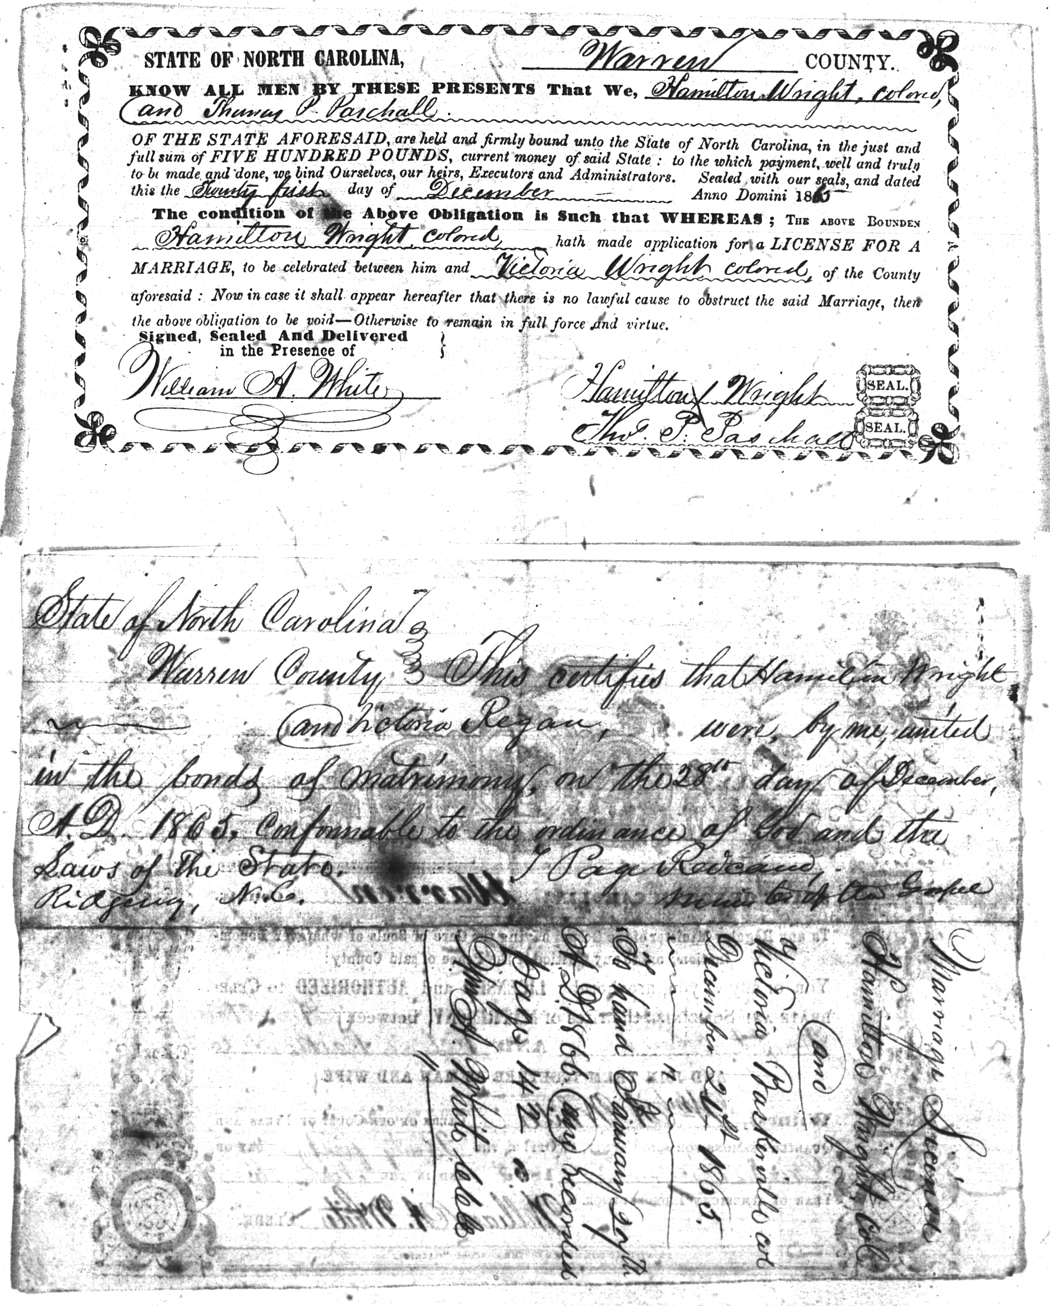 STATE OF NORTH CAROLINA, Warren COUNTY.
KNOW ALL MEN BY THESE PRESENTS That We, Hamilton Wright, colored,
and Thomas P. Paschall.
OF THE STATE AFORESAID, are held and firmly bound unto the State of North Carolina, in the just and
full sum of FIVE HUNDRED POUNDS, current money of said State: to the which payment, well and truly
to be made and done, we bind Ourselves, our heirs, Executors and Administrators. Sealed with our seals, and dated
this the Twenty first day of December Anno Domini 1865
The condition of the Above Obligation is Such that WHEREAS; THE ABOVE BOUNDEN
Hamilton Wright, colored, hath made application for a LICENSE FOR A
MARRIAGE, to be celebrated between him and Victoria Wright colored, of the County
aforesaid: Now in case it shall appear hereafter that there is no lawful cause to obstruct the said Marriage, then
the above obligation to be void—Otherwise to remain in full force and virtue.
Signed, Sealed And Delivered
in the Presence of
William A. White
Hamilton Wright SEAL.
Thos P. Paschall SEAL.
State of North Carolina
Warren County This certifies that Hamilton Wright
and Victoria Regan, were, by me, united
in the bonds of matrimony, on the 28th day of December,
A.D. 1865. Conformable to the ordinance of God and the
Laws of the State. T Page
Ridgeway, N.C. of the Gospel
Marriage License
Hamilton Wright col
and
Victoria Baskerville col
December 21st 1865.
To hand January
A D 1866 and recorded
page 142
Wm A. White clerk